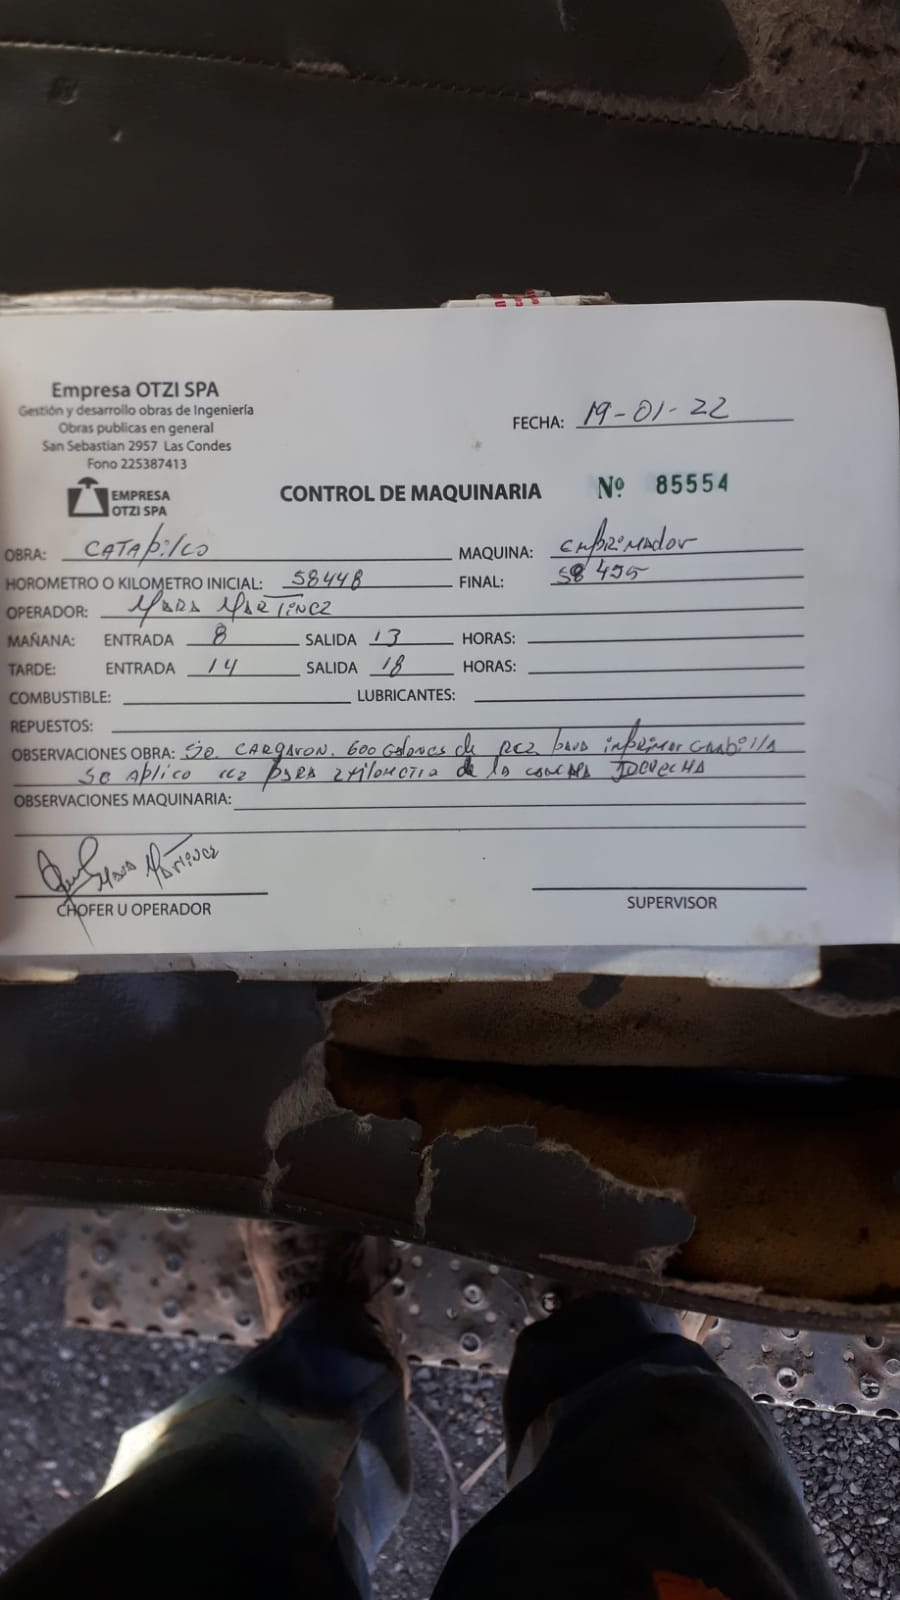 Empresa OTZI SPA
Gestión y desarrollo obras de Ingeniería
Obras publicas en general
San Sebastian 2957 Las Condes
Fono 225387413
EMPRESA
OTZI SPA
FECHA: 19-01-22
CONTROL DE MAQUINARIA Nº 85554
OBRA: CATApilco MAQUINA: EMPRIMADOr
HOROMETRO O KILOMETRO INICIAL: 58448 FINAL: 58495
OPERADOR: MARTINEZ
MAÑANA: ENTRADA 8 SALIDA 13 HORAS:
TARDE: ENTRADA 14 SALIDA 18 HORAS:
COMBUSTIBLE: LUBRICANTES:
REPUESTOS:
OBSERVACIONES OBRA: Se CARGARON. 600 GALones de para inprimar
Se Aplico PARA de la DerecHA
OBSERVACIONES MAQUINARIA:
MARTINEZ
CHOFER U OPERADOR
SUPERVISOR